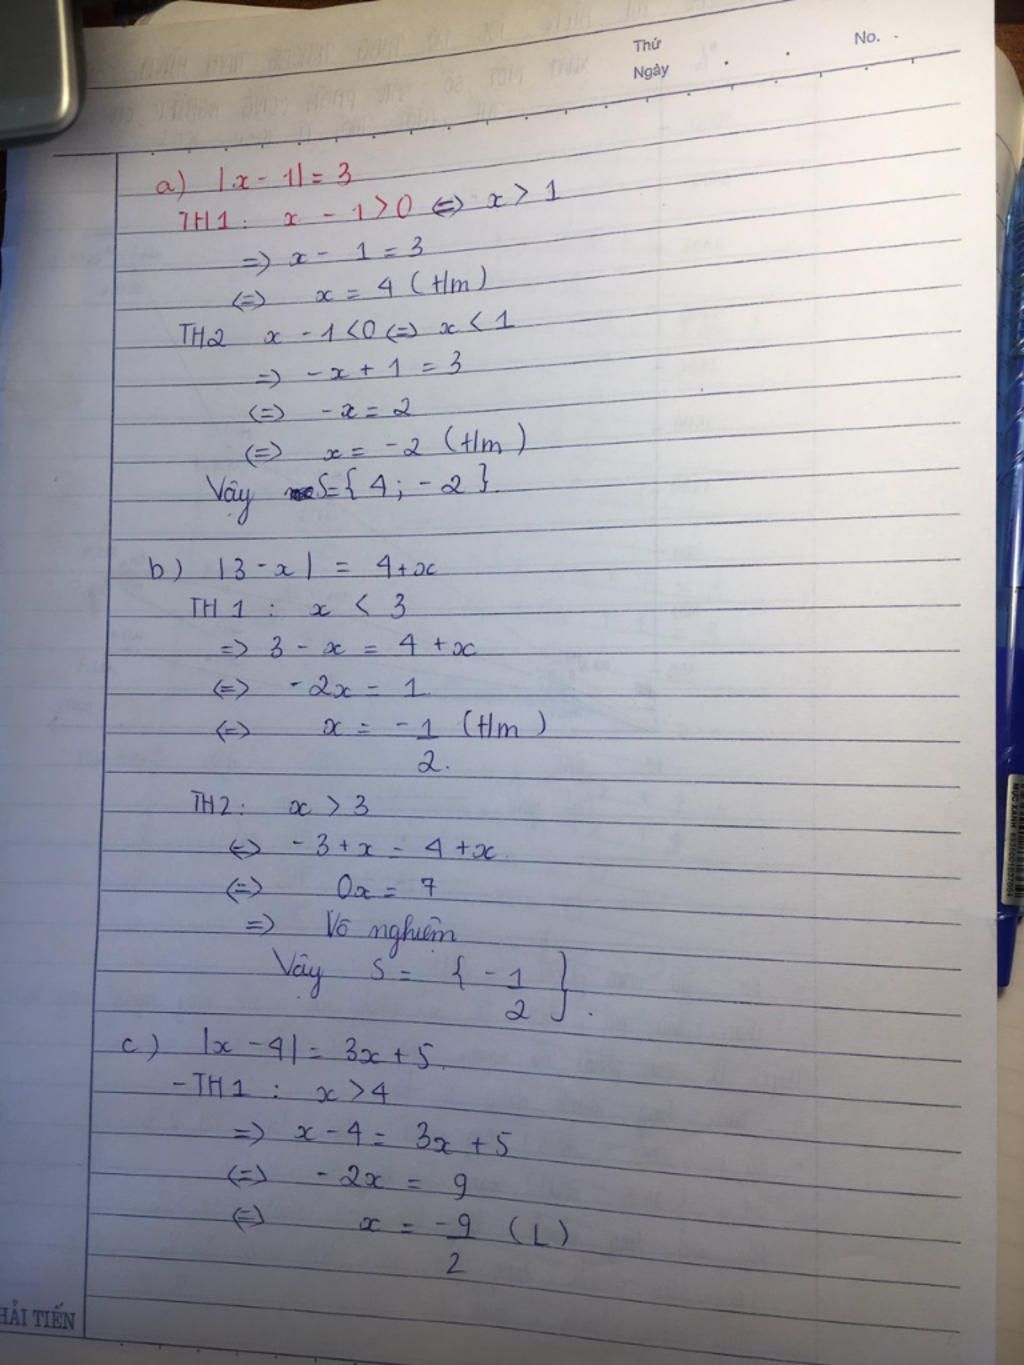 Thứ
Ngày
No.
a) |x - 1| = 3
TH1: x - 1 > 0 <=> x > 1
=> x - 1 = 3
<=> x = 4 (t/m)
TH2 x - 1 < 0 <=> x < 1
=> -x + 1 = 3
<=> -x = 2
<=> x = -2 (t/m)
Vậy S = { 4 ; -2 }.
b) |3 - x| = 4 + x
TH1 : x < 3
=> 3 - x = 4 + x
<=> -2x = 1.
<=> x = -1/2 (t/m)
TH2: x > 3
<=> -3 + x = 4 + x.
<=> 0x = 7
=> Vô nghiệm
Vậy S = { -1/2 }.
c) |x - 4| = 3x + 5.
- TH1 : x > 4
=> x - 4 = 3x + 5
<=> -2x = 9
<=> x = -9/2 (L)
HẢI TIẾN